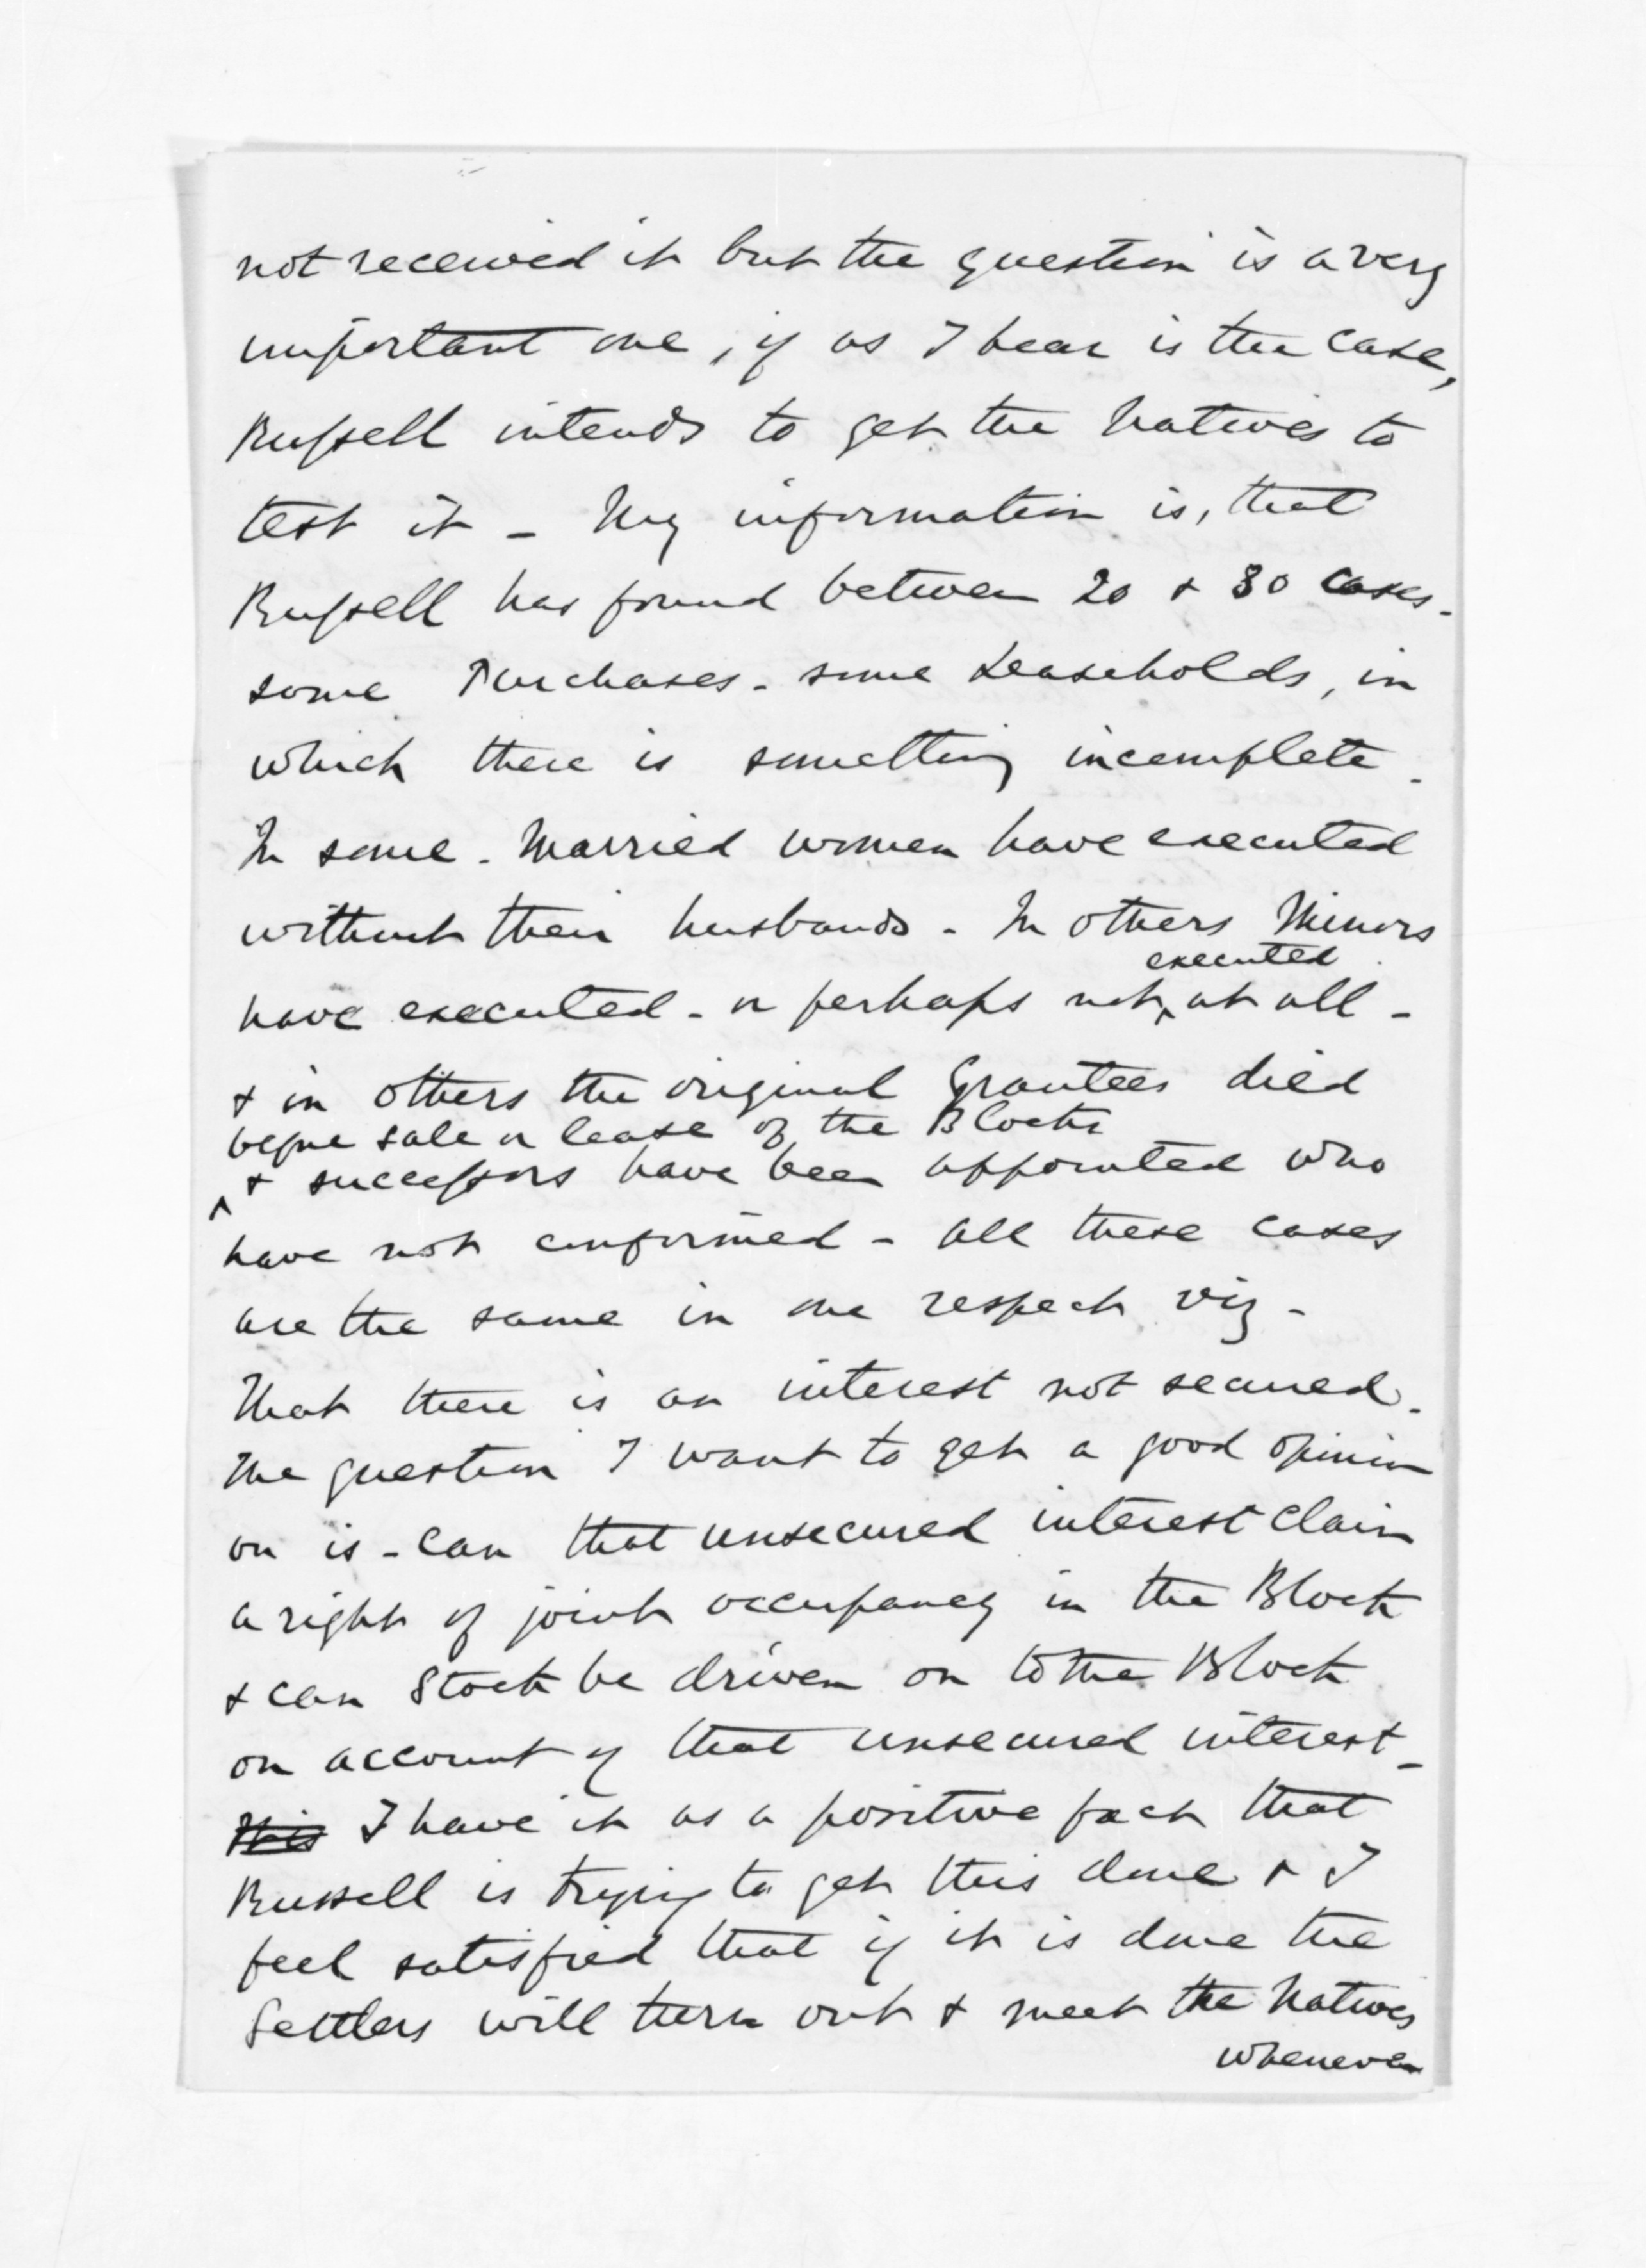 not received it but the question is a very
important one, if as I hear is the case,
Russell intends to get the Natives to
test it - My information is, that
Russell has found between 20 & 30 cases -
some Purchases - some Leaseholds, in
which there is something incomplete.
In some - Married women have executed
without their husbands - In others Minors
executed
have executed - or perhaps not ^ at all -
& in others the original Grantees died
before sale or lease of the Blocks
^ & successors have been appointed who
have not confirmed - all these cases
are the same in one respect viz -
That there is an interest not secured.
The question I want to get a good opinion
on is - Can that unsecured interest claim
a right of joint occupancy in the Block
& can Stock be driven on to the Block
on account of that unsecured interest -
This I have it as a positive fact that
Russell is trying to get this done & I
feel satisfied that if it is done the
Settlers will turn out & meet the Natives
whenever